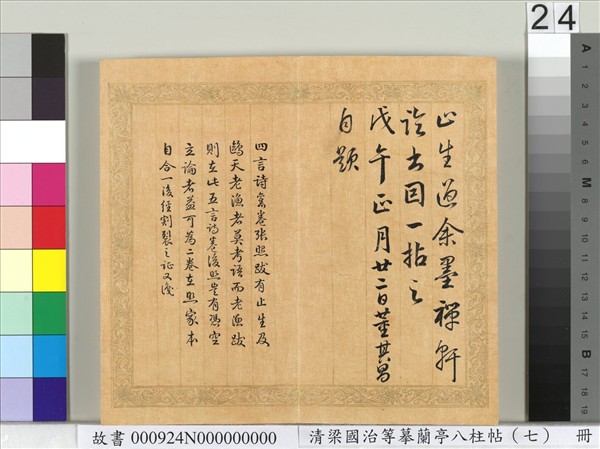 24
止生過余墨禪軒
諗出因一拈之
戊午正月廿二日董其昌
自題
四言詩當卷張照跋有止生及
鷗天老漁者莫考語而老漁跋
則在此五言詩卷後照豈有憑空
立論者益可為二卷在照家本
自合一後經割裂之證又淺
A
1
2
3
4
5
6
M
8
9
10
11
12
13
14
15
B
17
18
19
故書 000924N000000000
清梁國治等摹蘭亭八柱帖（七） 冊